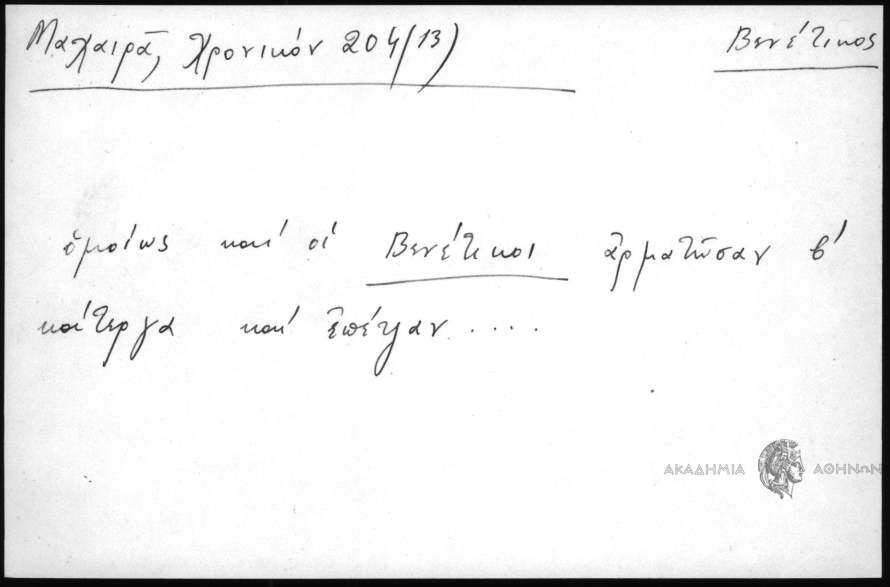 Μαχαιρᾶ, Χρονικόν 204(13) Βενέτικος
ὁμοίως καί οἱ Βενέτικοι ἀρματῶσαν β'
κάτεργα καί ἐπέψαν ....
ΑΚΑΔΗΜΙΑ ΑΘΗΝΩΝ